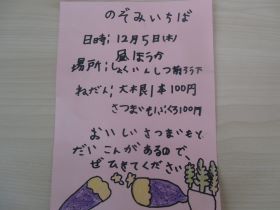 のぞみいちば
日時;12月5日(木)
昼ほうか
場所;しょくいんしつ前ろう下
ねだん;大根1本100円
さつまいも1ふくろ100円
おいしいさつまいもと
だいこんがあるので、
ぜひきてください